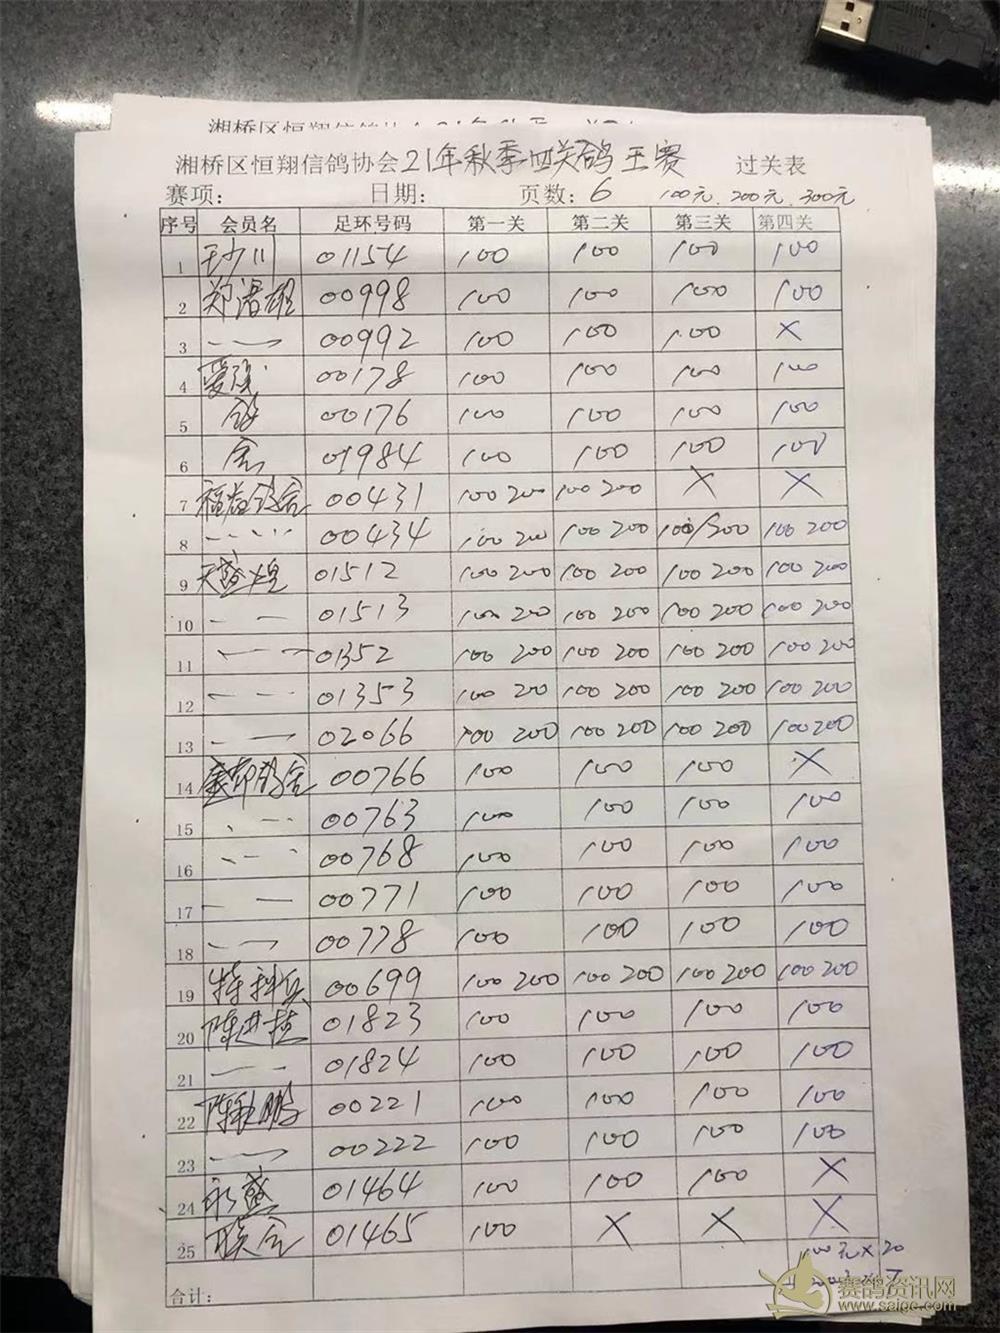 湘桥区恒翔信鸽协会21年秋季四关鸽王赛 过关表
赛项: 日期: 页数: 6 100元. 200元. 300元
序号 会员名 足环号码 第一关 第二关 第三关 第四关
1 王少川 01154 100 100 100 100
2 00998 100 100 100 100
3 〃 00992 100 100 100 ×
4 00178 100 100 100 100
5 鸽 00176 100 100 100 100
6 舍 01984 100 100 100 100
7 福春鸽舍 00431 100 200 100 200 × ×
8 〃 00434 100 200 100 200 100/200 100 200
9 01512 100 200 100 200 100 200 100 200
10 〃 01513 100 200 100 200 100 200 100 200
11 〃 01352 100 200 100 200 100 200 100 200
12 〃 01353 100 200 100 200 100 200 100 200
13 〃 02066 100 200 100 200 100 200 100 200
14 鸽舍 00766 100 100 100 ×
15 〃 00763 100 100 100 100
16 〃 00768 100 100 100 100
17 〃 00771 100 100 100 100
18 〃 00778 100 100 100 100
19 特科兵 00699 100 200 100 200 100 200 100 200
20 陈进植 01823 100 100 100 100
21 〃 01824 100 100 100 100
22 陈秋鹏 00221 100 100 100 100
23 〃 00222 100 100 100 100
24 永盛 01464 100 100 100 ×
25 联合 01465 100 × × ×
100元×20
合计: 200元×7
赛鸽资讯网
www.saige.com